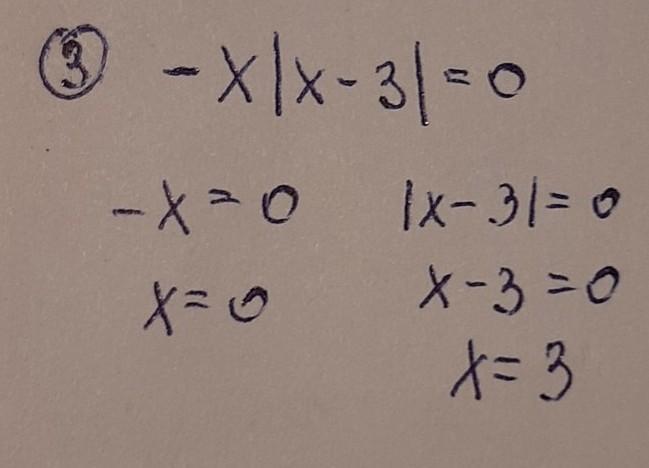 ③ -x|x-3|=0
-x=0 |x-3|=0
x=0 x-3=0
x=3